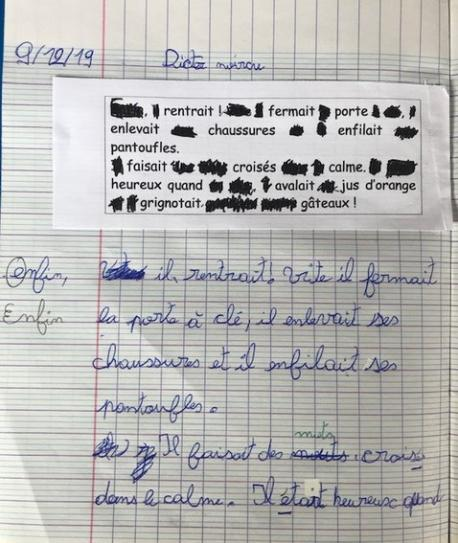 9/12/19 Dictée
, rentrait ! fermait porte
enlevait chaussures enfilait
pantoufles.
faisait croisés calme.
heureux quand , avalait jus d'orange
grignotait gâteaux !
Enfin, il rentrait! Vite il fermait
Enfin la porte à clé, il enlevait ses
chaussures et il enfilait ses
pantoufles.
mots
Il faisait des croisés
dans le calme. Il était heureux quand